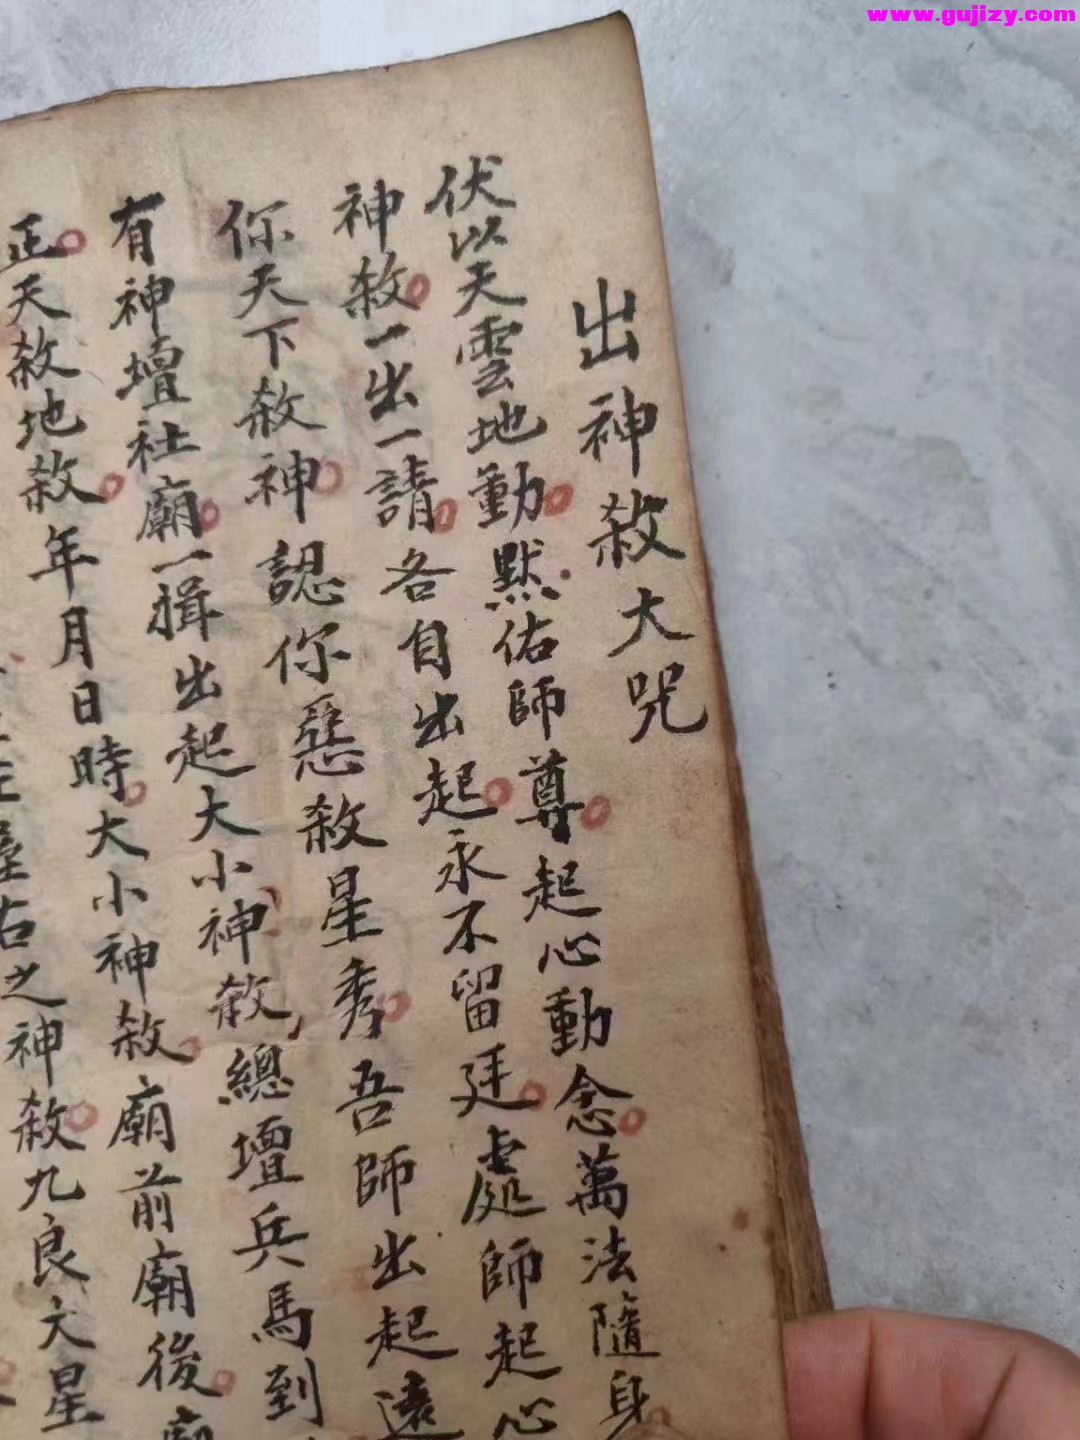 www.gujizy.com
出神煞大咒
伏以天雲地動默佑師尊起心動念萬法隨身
神煞一出一請各自出起永不留廷處師起心
你天下煞神認你惡煞星秀吾師出起遠
有神壇社廟一揖出起大小神煞總壇兵馬到
正天煞地煞年月日時大小神煞廟前廟後
右之神煞九良大星